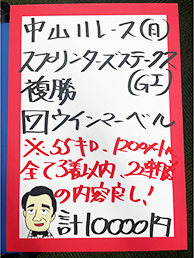 中山11レース(日)
スプリンターズステークス
(GⅠ)
複勝
7 ウインマーベル
※、55キロ、1200メートル
全て3着以内、2連勝
の内容良し!
計10000円